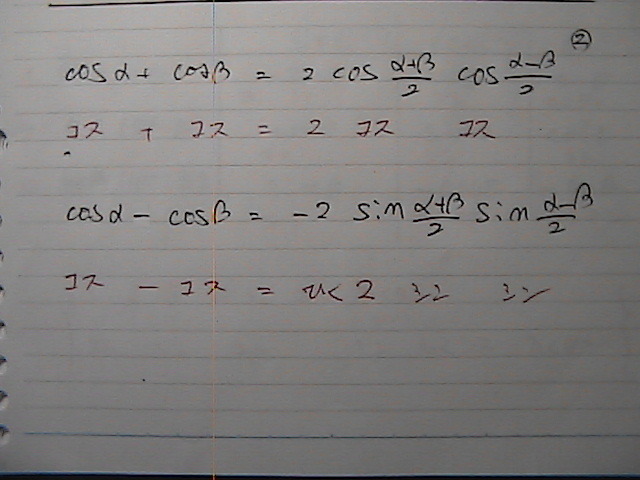 cos α + cos β = 2 cos (α+β)/2 cos (α-β)/2 ②
コス + コス = 2 コス コス
cos α - cos β = -2 sin (α+β)/2 sin (α-β)/2
コス - コス = 2